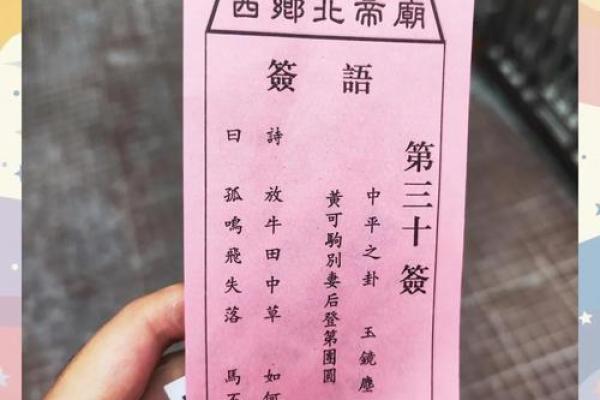 西鄉北帝廟
簽語
第三十簽
中平之卦 玉鏡塵
黃可駒別妻后登第團圓
詩 放牛田中草 如何
曰 孤鳴飛失落 馬